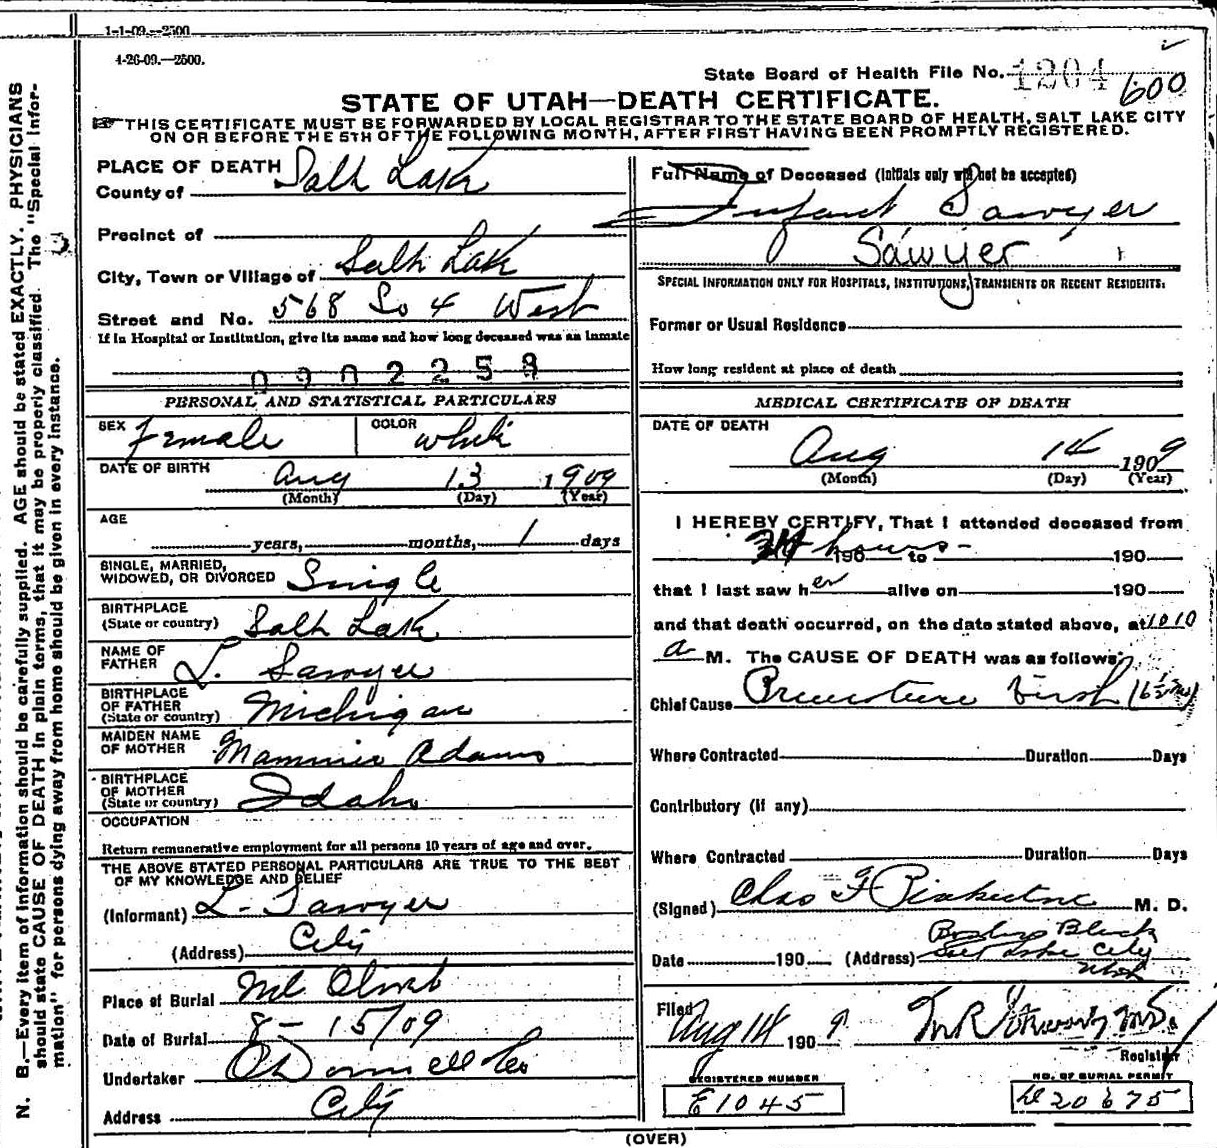 1-1-09.—2500
4-26-09.—2500.
State Board of Health File No. 1204 600
STATE OF UTAH—DEATH CERTIFICATE.
THIS CERTIFICATE MUST BE FORWARDED BY LOCAL REGISTRAR TO THE STATE BOARD OF HEALTH, SALT LAKE CITY
ON OR BEFORE THE 5TH OF THE FOLLOWING MONTH, AFTER FIRST HAVING BEEN PROMPTLY REGISTERED.
N. B.—Every item of information should be carefully supplied. AGE should be stated EXACTLY. PHYSICIANS
should state CAUSE OF DEATH in plain terms, that it may be properly classified. The "Special Infor-
mation" for persons dying away from home should be given in every instance.
PLACE OF DEATH
County of Salt Lake
Precinct of
City, Town or Village of Salt Lake
Street and No. 568 So 4 West
If in Hospital or Institution, give its name and how long deceased was an inmate
0902258
PERSONAL AND STATISTICAL PARTICULARS
SEX Female COLOR White
DATE OF BIRTH Aug 13 1909
(Month) (Day) (Year)
AGE
years, months, 1 days
SINGLE, MARRIED,
WIDOWED, OR DIVORCED Single
BIRTHPLACE
(State or country) Salt Lake
NAME OF
FATHER L. Sawyer
BIRTHPLACE
OF FATHER
(State or country) Michigan
MAIDEN NAME
OF MOTHER Mammie Adams
BIRTHPLACE
OF MOTHER
(State or country) Idaho
OCCUPATION
Return remunerative employment for all persons 10 years of age and over.
THE ABOVE STATED PERSONAL PARTICULARS ARE TRUE TO THE BEST
OF MY KNOWLEDGE AND BELIEF
(Informant) L. Sawyer
(Address) City
Place of Burial Mt Olivet
Date of Burial 8-15/09
Undertaker O'Donnell & Co
Address City
Full Name of Deceased (Initials only will not be accepted)
Infant Sawyer
Sawyer
SPECIAL INFORMATION ONLY FOR HOSPITALS, INSTITUTIONS, TRANSIENTS OR RECENT RESIDENTS:
Former or Usual Residence
How long resident at place of death
MEDICAL CERTIFICATE OF DEATH
DATE OF DEATH
Aug 14 1909
(Month) (Day) (Year)
I HEREBY CERTIFY, That I attended deceased from
24 hours 190 to 190
that I last saw her alive on 190
and that death occurred, on the date stated above, at 10 10
a M. The CAUSE OF DEATH was as follows:
Chief Cause Premature birth (6½ ms)
Where Contracted Duration Days
Contributory (if any)
Where Contracted Duration Days
(Signed) Chas F M. D.
Date 190 (Address) Block
Salt Lake City
Utah
Filed
Aug 14 1909 M.D.
Registrar
REGISTERED NUMBER NO. OF BURIAL PERMIT
E1045 20675
(OVER)